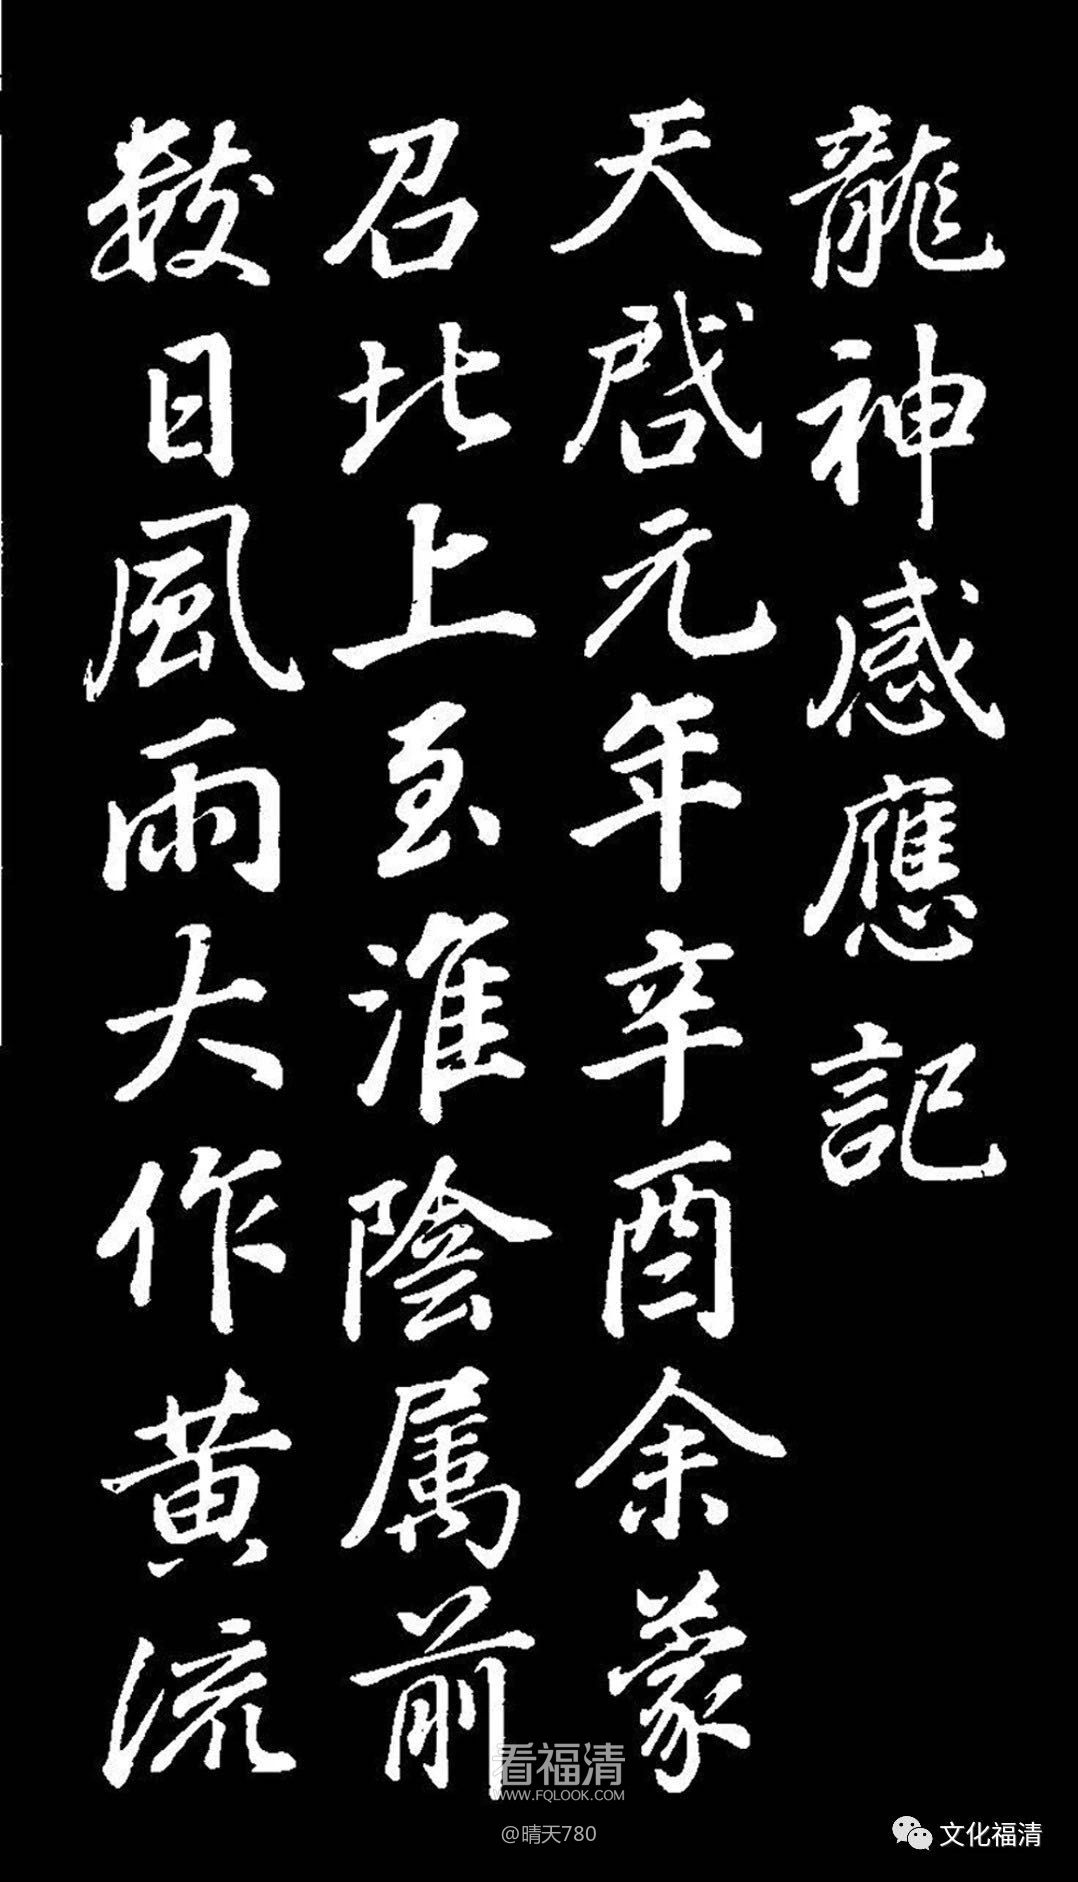 龍神感應記
天啓元年辛酉余蒙
召北上至淮陰属前
數日風雨大作黄流
看福清
WWW.FQLOOK.COM
@晴天780
文化福清